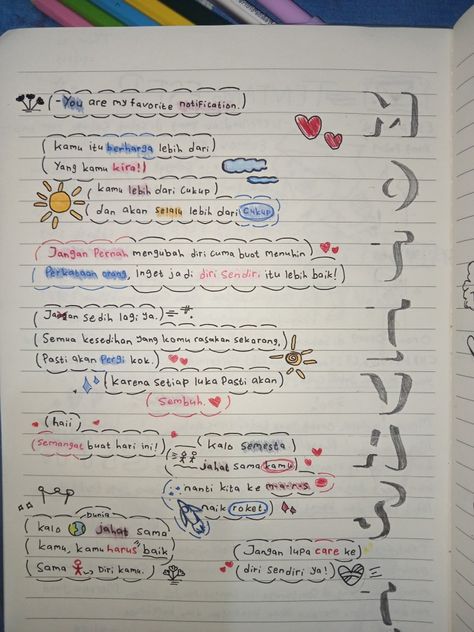 - You are my favorite notification.
kamu itu berharga lebih dari
Yang kamu kira!
kamu lebih dari cukup
dan akan selalu lebih dari cukup
Jangan Pernah mengubah diri cuma buat menuhin
Perkataan orang, Inget jadi diri sendiri itu lebih baik!
Jangan sedih lagi ya.
Semua kesedihan yang kamu rasakan sekarang,
Pasti akan Pergi kok.
karena setiap luka Pasti akan
Sembuh.
haii
Semangat buat hari ini!
kalo semesta
jahat sama kamu
nanti kita ke m-a-r-s
naik roket.
Dunia
kalo jahat sama
kamu, kamu harus baik
Sama Diri kamu.
Jangan lupa care ke
diri sendiri ya!